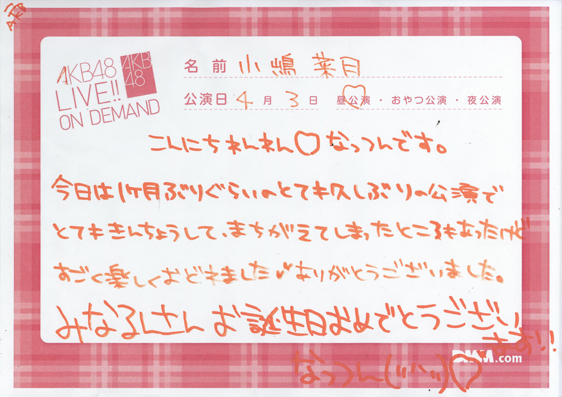 AKB48
LIVE!!
ON DEMAND
AKB
48
名前 小嶋菜月
公演日 4月3日 昼公演・おやつ公演・夜公演
こんにちわんわん♡なっつんです。
今日は1ヶ月ぶりぐらいのとても久しぶりの公演で
とてもきんちょうして、まちがえてしまったところもあったけど
すごく楽しくおどれました♪ありがとうございました。
みなるんさんお誕生日おめでとうござい
ます!!
.com
なっつん(''^'')♡